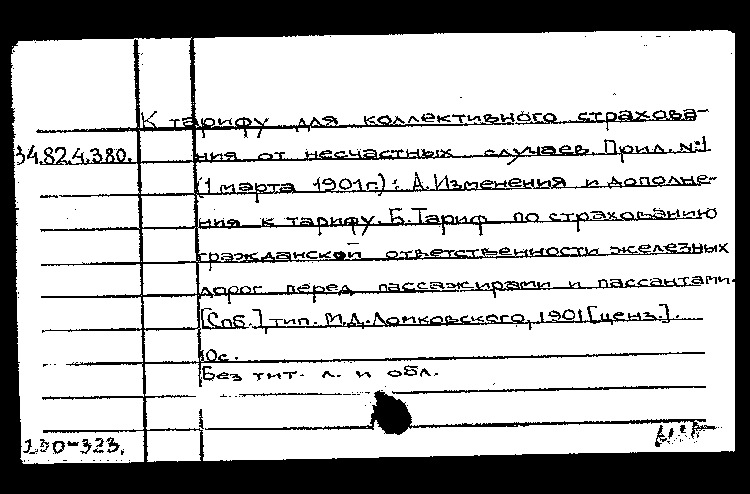 К тарифу для коллективного страхова-
34.82.4.380. ния от несчастных случаев. Прил. №1
(1 марта 1901г.): А. Изменения и дополне-
ния к тарифу. Б. Тариф по страхованию
гражданской ответственности железных
дорог перед пассажирами и пассантами.
[Спб.], тип. М.Д. Ломковского, 1901 [ценз.].
10с.
Без тит. л. и обл.
190-323.